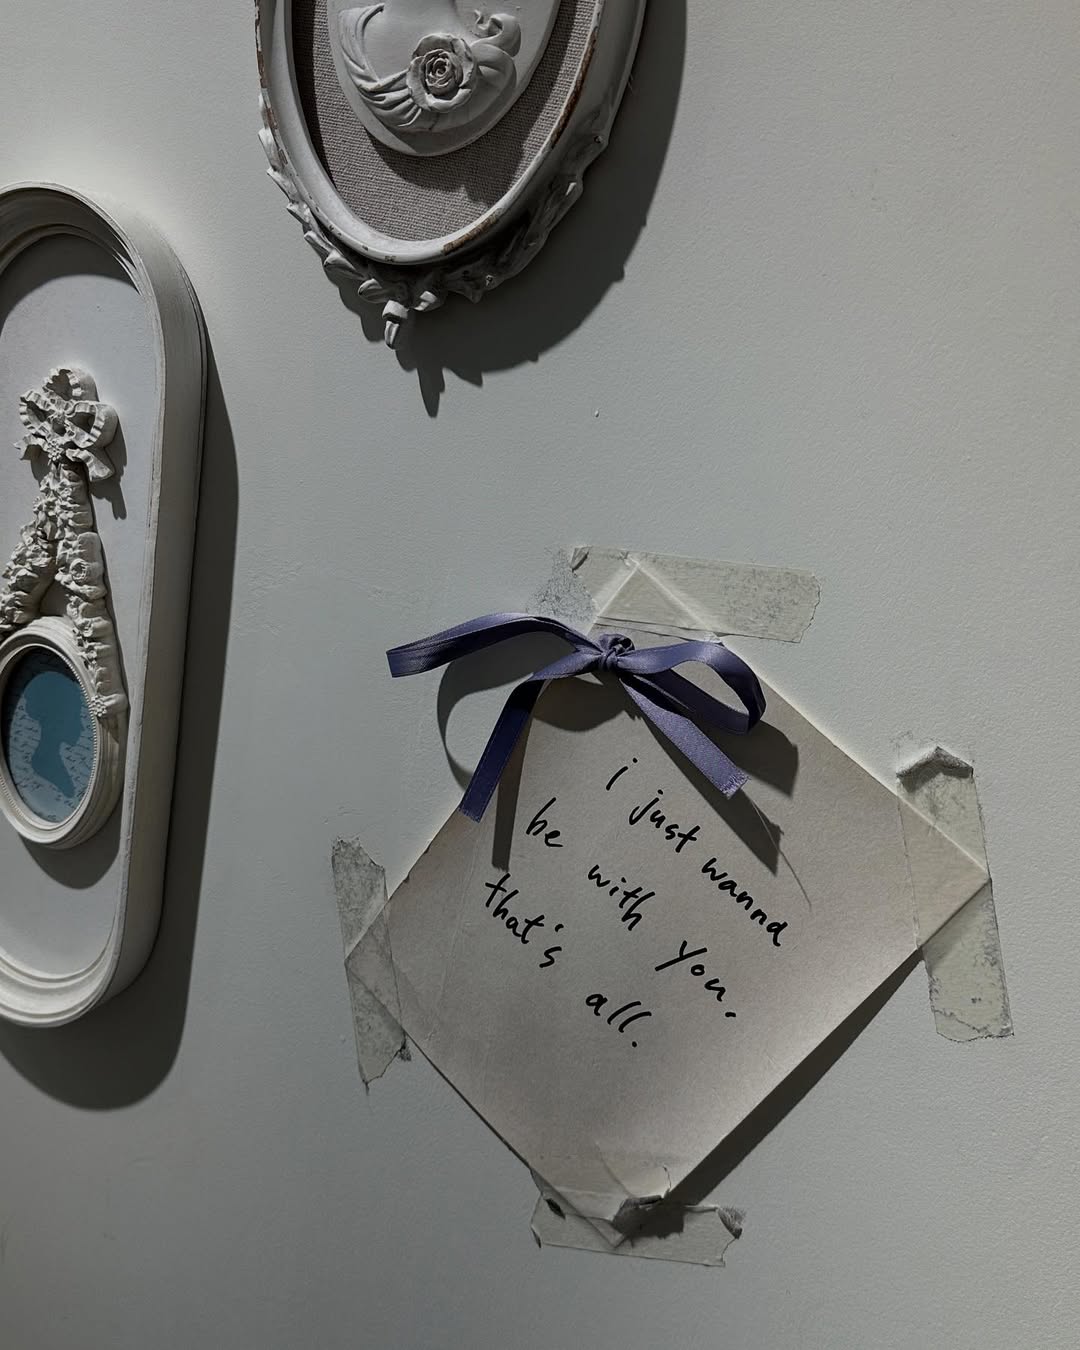 i just wanna
be with you.
that's all.